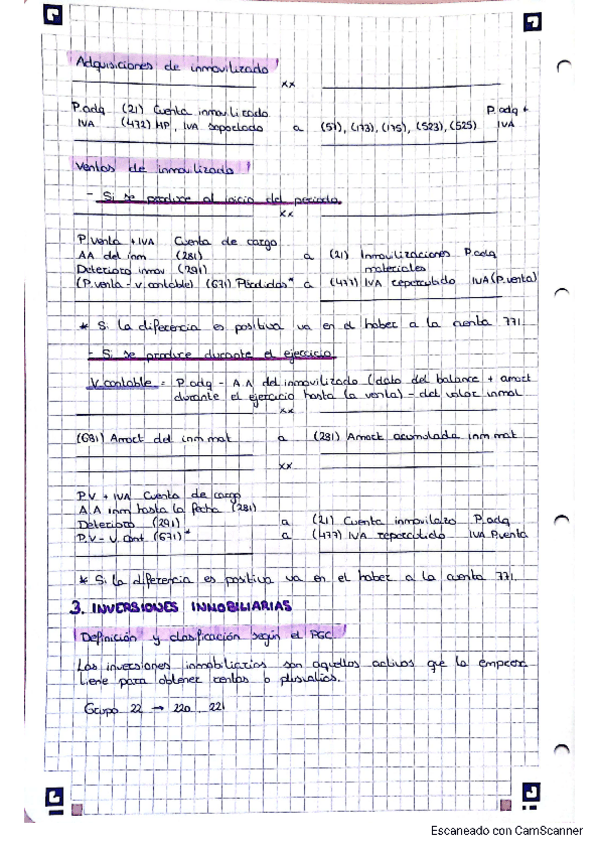 Adquisiciones de inmovilizado
xx
P.adq (21) Cuenta inmovilizado P.adq +
IVA (472) HP, IVA soportado a (57), (173), (175), (523), (525) IVA
Ventas de inmovilizado
- Si se produce al inicio del periodo
xx
P.venta + IVA Cuenta de cargo
AA del inm (281) a (21) Inmovilizaciones P.adq
Deterioro inmov (291) materiales
(P.venta - V.contable) (671) Pérdidas* a (477) IVA repercutido IVA (P.venta)
* Si la diferencia es positiva va en el haber a la cuenta 771.
- Si se produce durante el ejercicio
V.contable = P.adq - A.A del inmovilizado (dato del balance + amort
durante el ejercicio hasta la venta) - det valor inmol
xx
(681) Amort del inm mat a (281) Amort acumulada inm mat
xx
P.V + IVA Cuenta de cargo
A.A inm hasta la fecha (281)
Deterioro (291) a (21) Cuenta inmovilizo P.adq
P.V - V.cont. (671)* a (477) IVA repercutido IVA P.venta
* Si la diferencia es positiva va en el haber a la cuenta 771.
3. INVERSIONES INMOBILIARIAS
Definición y clasificación según el PGC
Las inversiones inmobiliarias son aquellos activos que la empresa
tiene para obtener rentas o plusvalías.
Grupo 22 → 220, 221
Escaneado con CamScanner